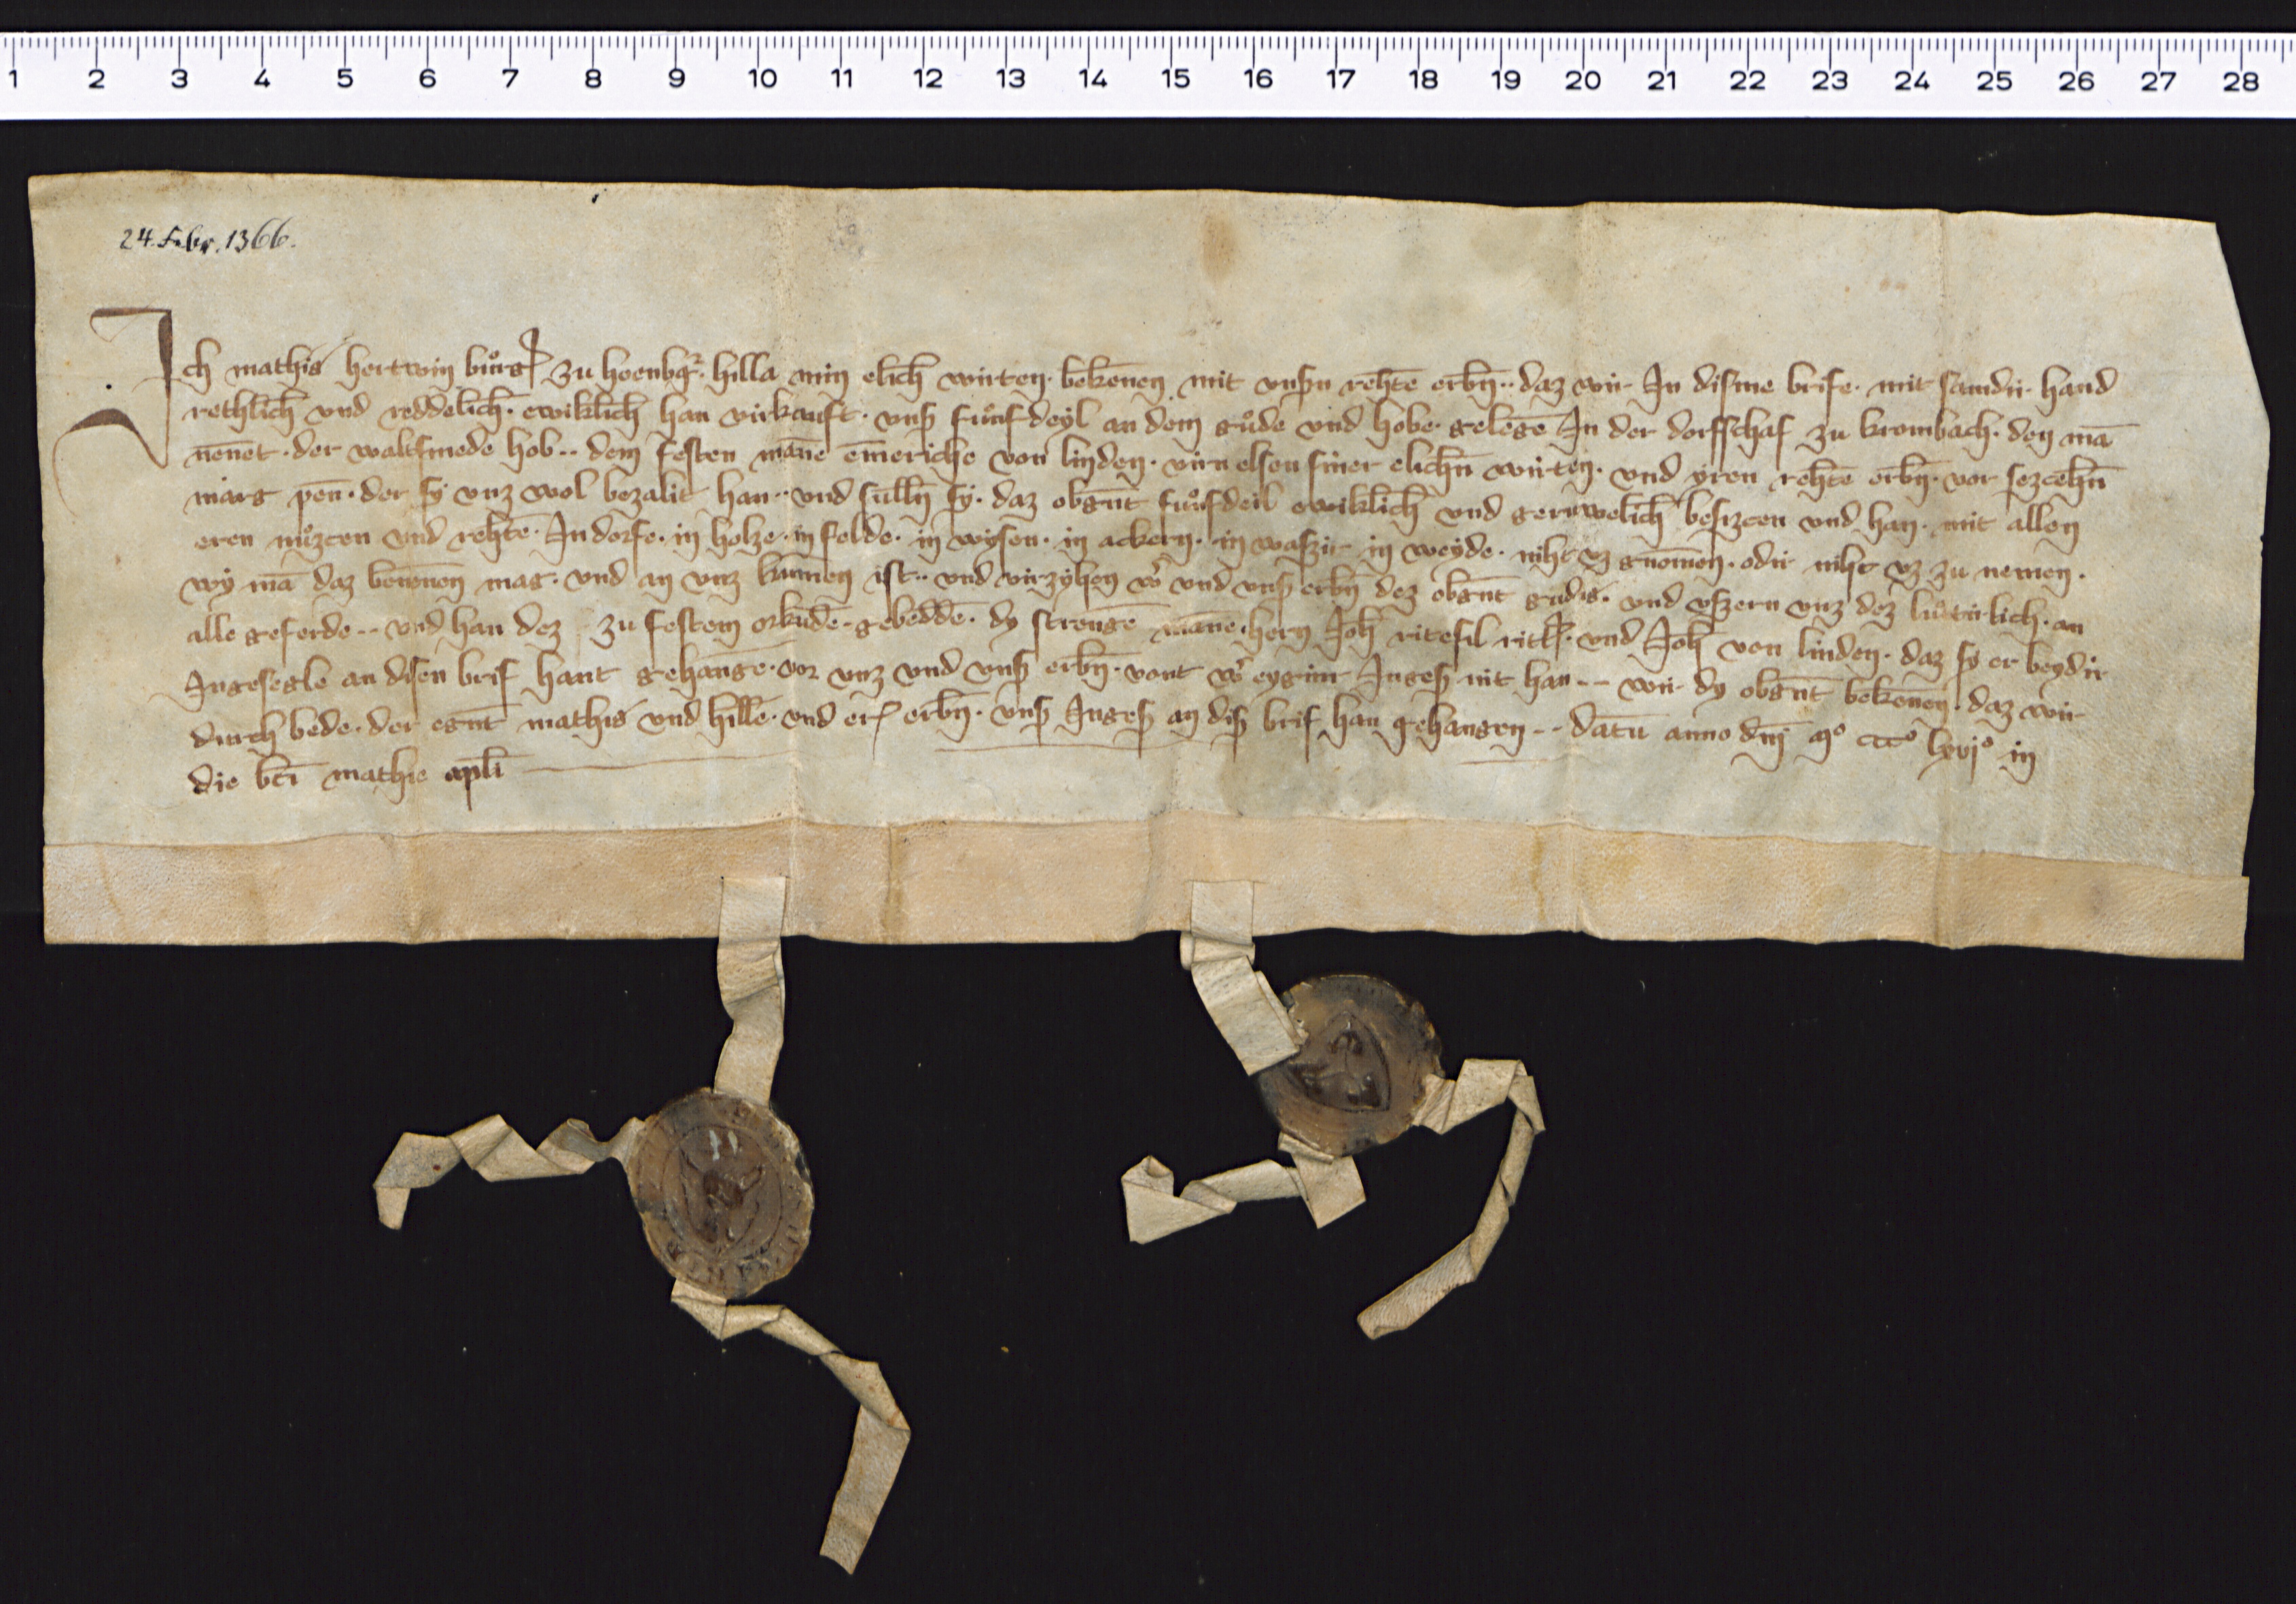 1 2 3 4 5 6 7 8 9 10 11 12 13 14 15 16 17 18 19 20 21 22 23 24 25 26 27 28
24. Febr. 1366.
Ich mathis hertwin bůrgˀ zu hoenbg̃. hilla min elich̄ wirten. bekēnen mit vnsˀn rehtē erbn̄.. daz wir In disme brife. mit samdir hand
rethlich̄ vnd reddelich̄. ewiklich̄ han virkauft. vnsˀ fůnfdeyl an dem gůde vnd hobe. gelegē In der dorffschaf zu krombach. den mā
nēnet. der waltsmede hob.. dem festen mānē em̄eriche von linden. virn elsen siner elichn̄ wirten. vnd yren rehtē erbn̄. vor sezcehn̄
marg pēn. der sy vnz wol bezalit han.. vnd sulln̄ sy. daz obgn̄t fůnfdeil ewiklich̄ vnd geruwelich̄ besizcen vnd han. mit allen
eren nůzcen vnd rehtē. In dorfe. in holze. in felde. in wysen. in ackern. in waszir in weyde. niht vz gnom̄en. odir niht vz zu nemen.
wy mā daz benēnen mag. vnd an vnz kum̄en ist.. vnd virzyhen wˀ vnd vnsˀ erbn̄ dez obgn̄t gudis. vnd vszern vnz dez lutirlich. an
alle geferde.. vnd han dez zu festem orkūde. gebeddē. dy strengē mānē. hern Joh̄ ritesil rittˀ. vnd Joh̄ von linden. daz sy er beydir
Ingesegle an disen brif hant gehangē. vor vnz vnd vnsˀ erbn̄. vont wˀ eyginir Ingesˀ nit han.. wir dy obgn̄t bekēnen. daz wir
durch bede. der egn̄t mathis vnd hillē. vnd erˀ erbn̄. vnsˀ Ingesˀ an disˀ brif han gehangen.. datū anno dn̄j mº cccº lxvjº in
die bt̄i mathie apl̄i